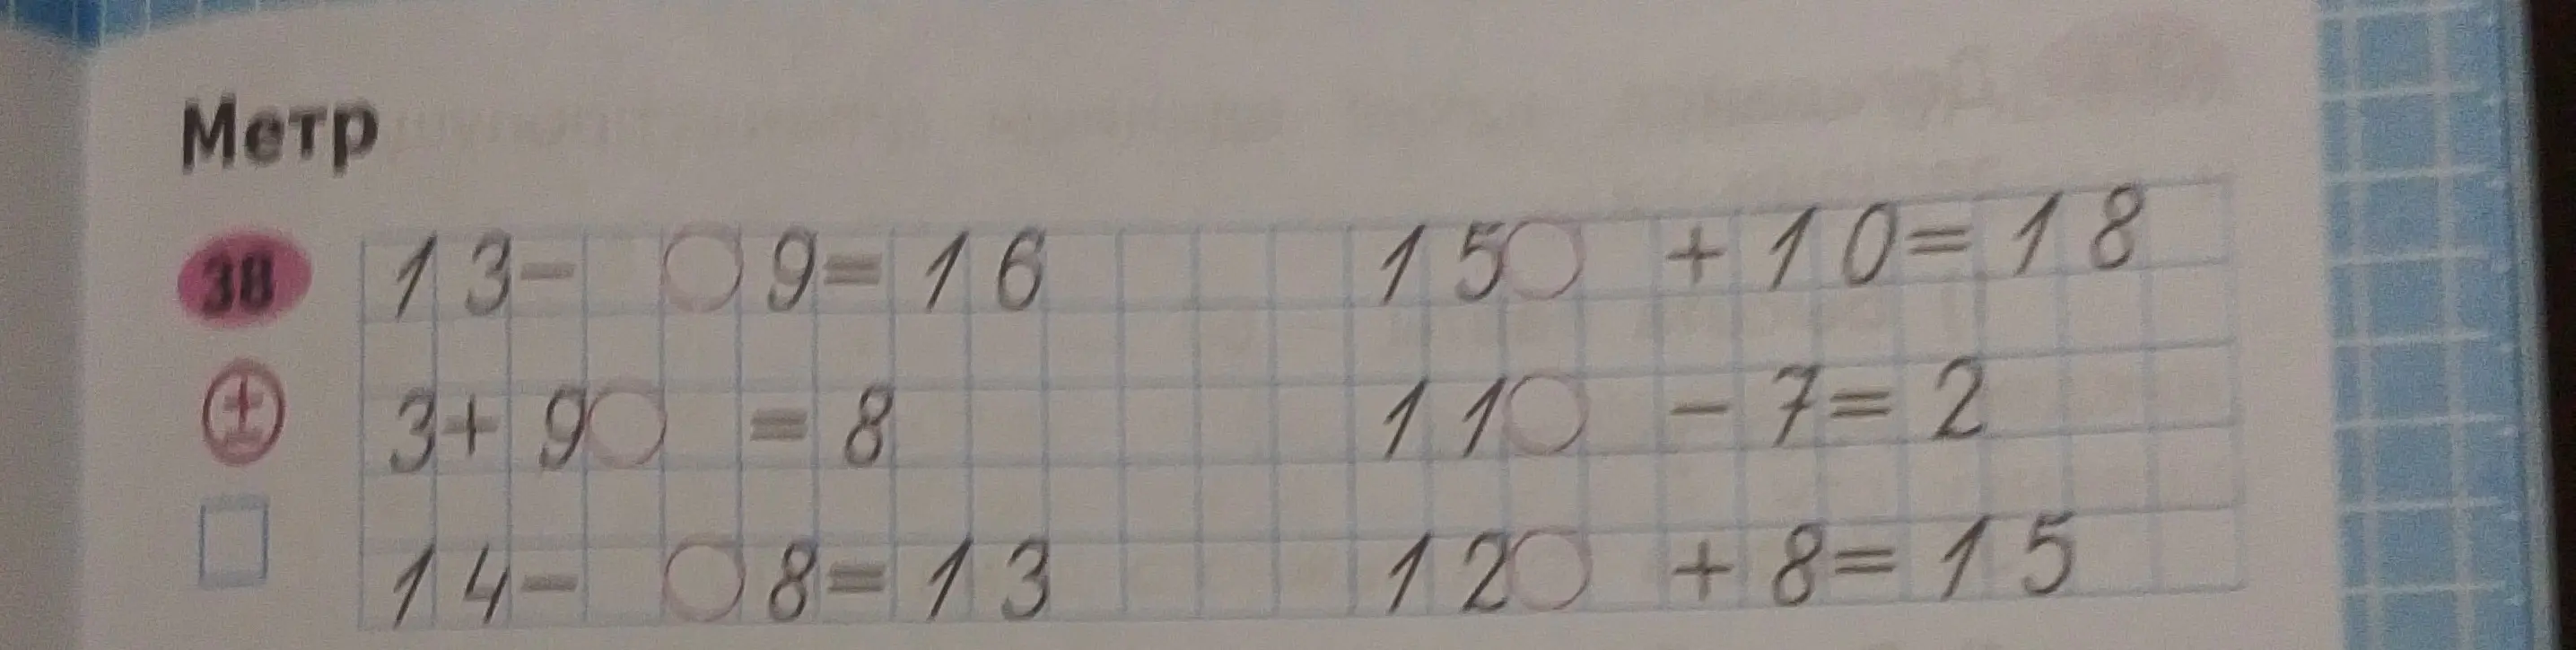 Метр
38 13- ○ 9=16 15○ +10=18
± 3+ 9○ =8 11○ -7=2
□ 14- ○ 8=13 12○ +8=15